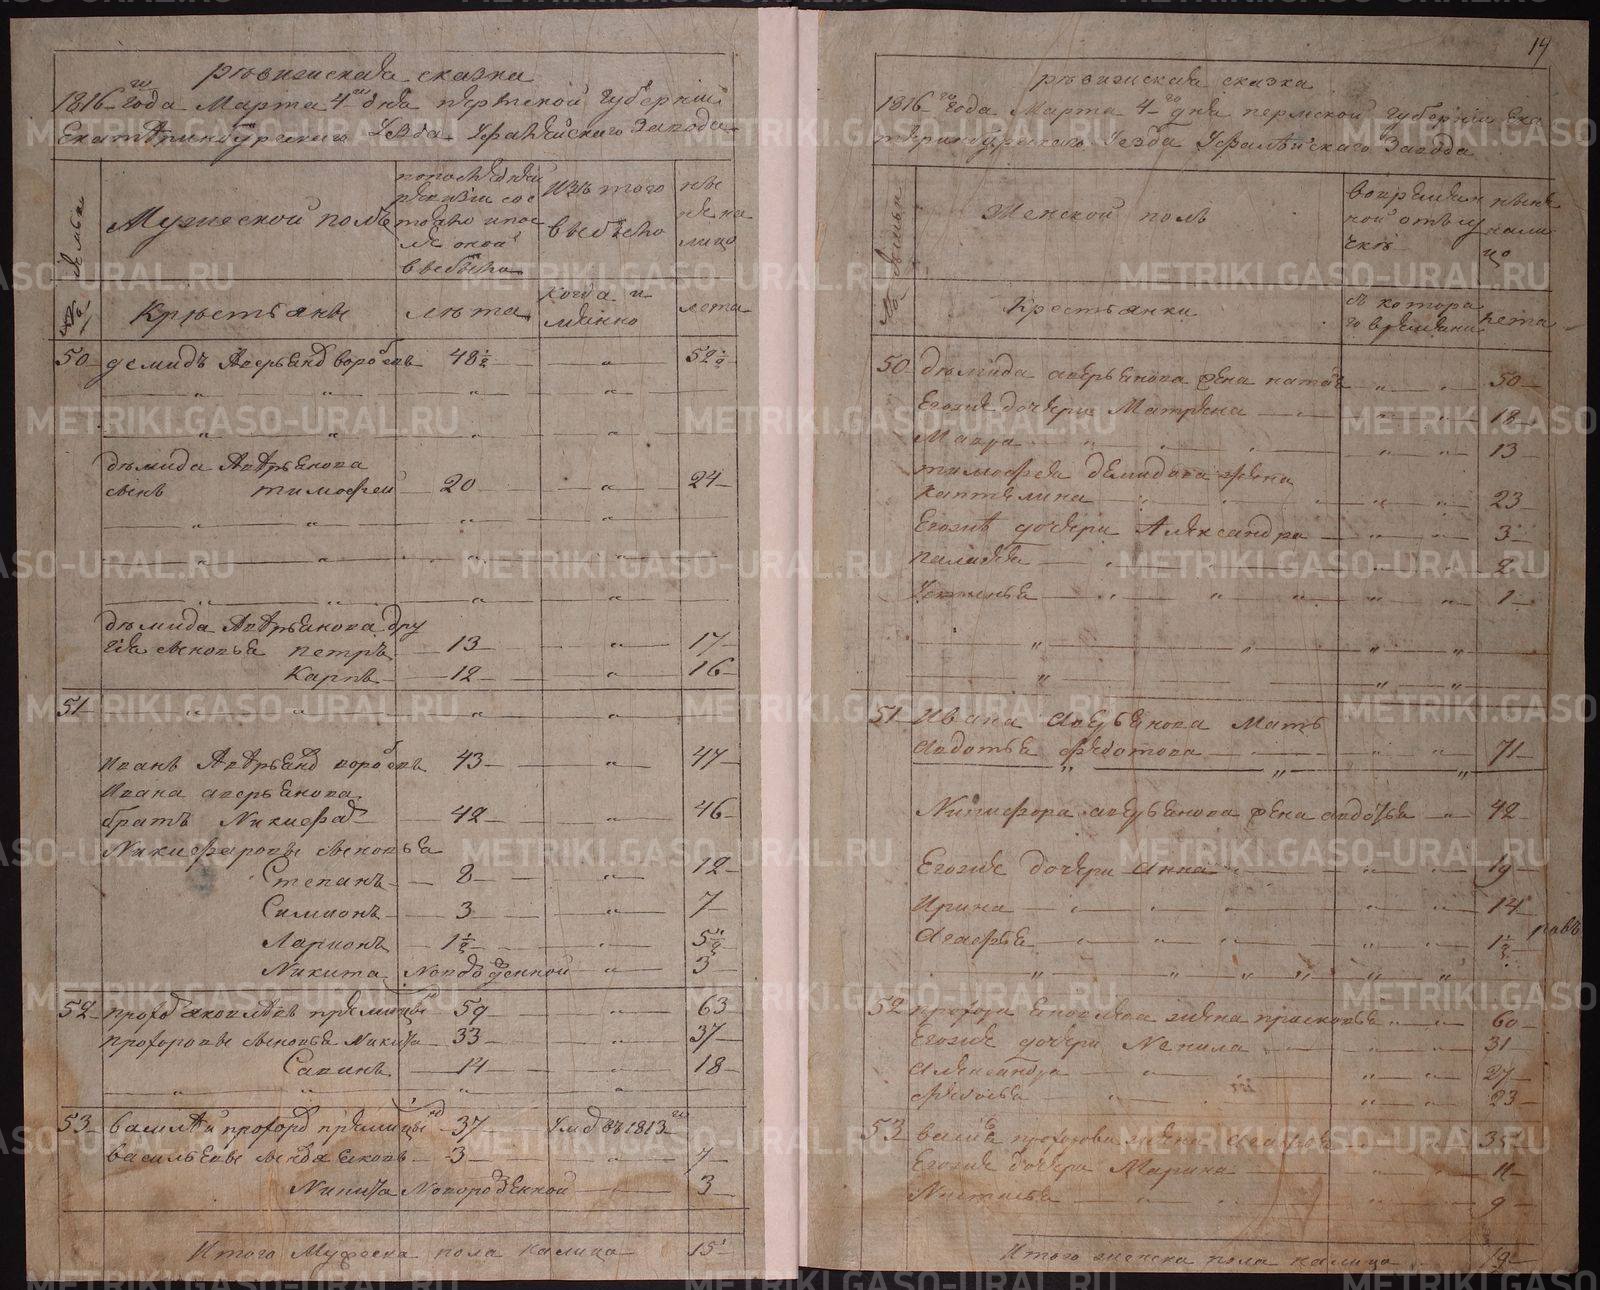 ревизская сказка
1816 го года Марта 4 го дня пермской Губернии
Екатеринбургскаго Уезда Уфалейскаго Завода
№ Семьи
Мужеской полъ
по последней ревизии состояло и после оной выбыло
Изъ того выбыло
ныне на лицо
Крестьяне
лета
когда имянно
лета
50 демидъ Аверьановъ воробьевъ 48½ " 52½
демида Аверьанова
сынъ тимофеи 20 " 24
демида Аверьанова дру
гия сыновья петръ 13 " 17
Карпъ 12 " 16
51
Иванъ Аверьановъ воробьевъ 43 " 47
Ивана аверьанова
братъ Никифоръ 42 " 46
Никифоровы сыновья
Степанъ 8 " 12
Симионъ 3 " 7
Ларионъ 1½ " 5½
Никита Новорожденной " 3
52 профоръ яковлевъ 59 " 63
профоровы сыновья Никита 33 " 37
Савинъ 14 " 18
53 василей профоровъ 37 Умре въ 1813 го
васильевы сынъ яковъ 3 " 7
Никита Новорожденной 3
Итого Мужеска пола налицо 15
14
ревизская сказка
1816 го года Марта 4 го дня пермской Губернии Ека
теринбурскаго Уезда Уфалейскаго Завода
№ Семьи
Женской полъ
во временной отлучке
ныне на лицо
Крестьянки
съ котораго времяни
лета
50 демида аверьанова жена " " 50
Егоже дочери Матрена " " 18
Мавра " " 13
тимофея демидова жена
каптелина " " 23
Егожъ дочери Александра " " 3
палагея " " 2
Устинья " " 1
51 Ивана аверьанова Мать
авдотья федотова " " 71
Никифора аверьанова жена авдотья " 42
Егоже дочери Анна " " 19
Ирина " " 14
Агафья " " 1½
52 профора яковлева жена прасковья " " 60
Егоже дочери Ненила " " 31
александра " " 27
федосья " " 23
53 василья профорова жена агафья " " 35
Егоже дочери Марина " " 11
Настасья " " 9
Итого женска пола налицо 19
METRIKI.GASO-URAL.RU